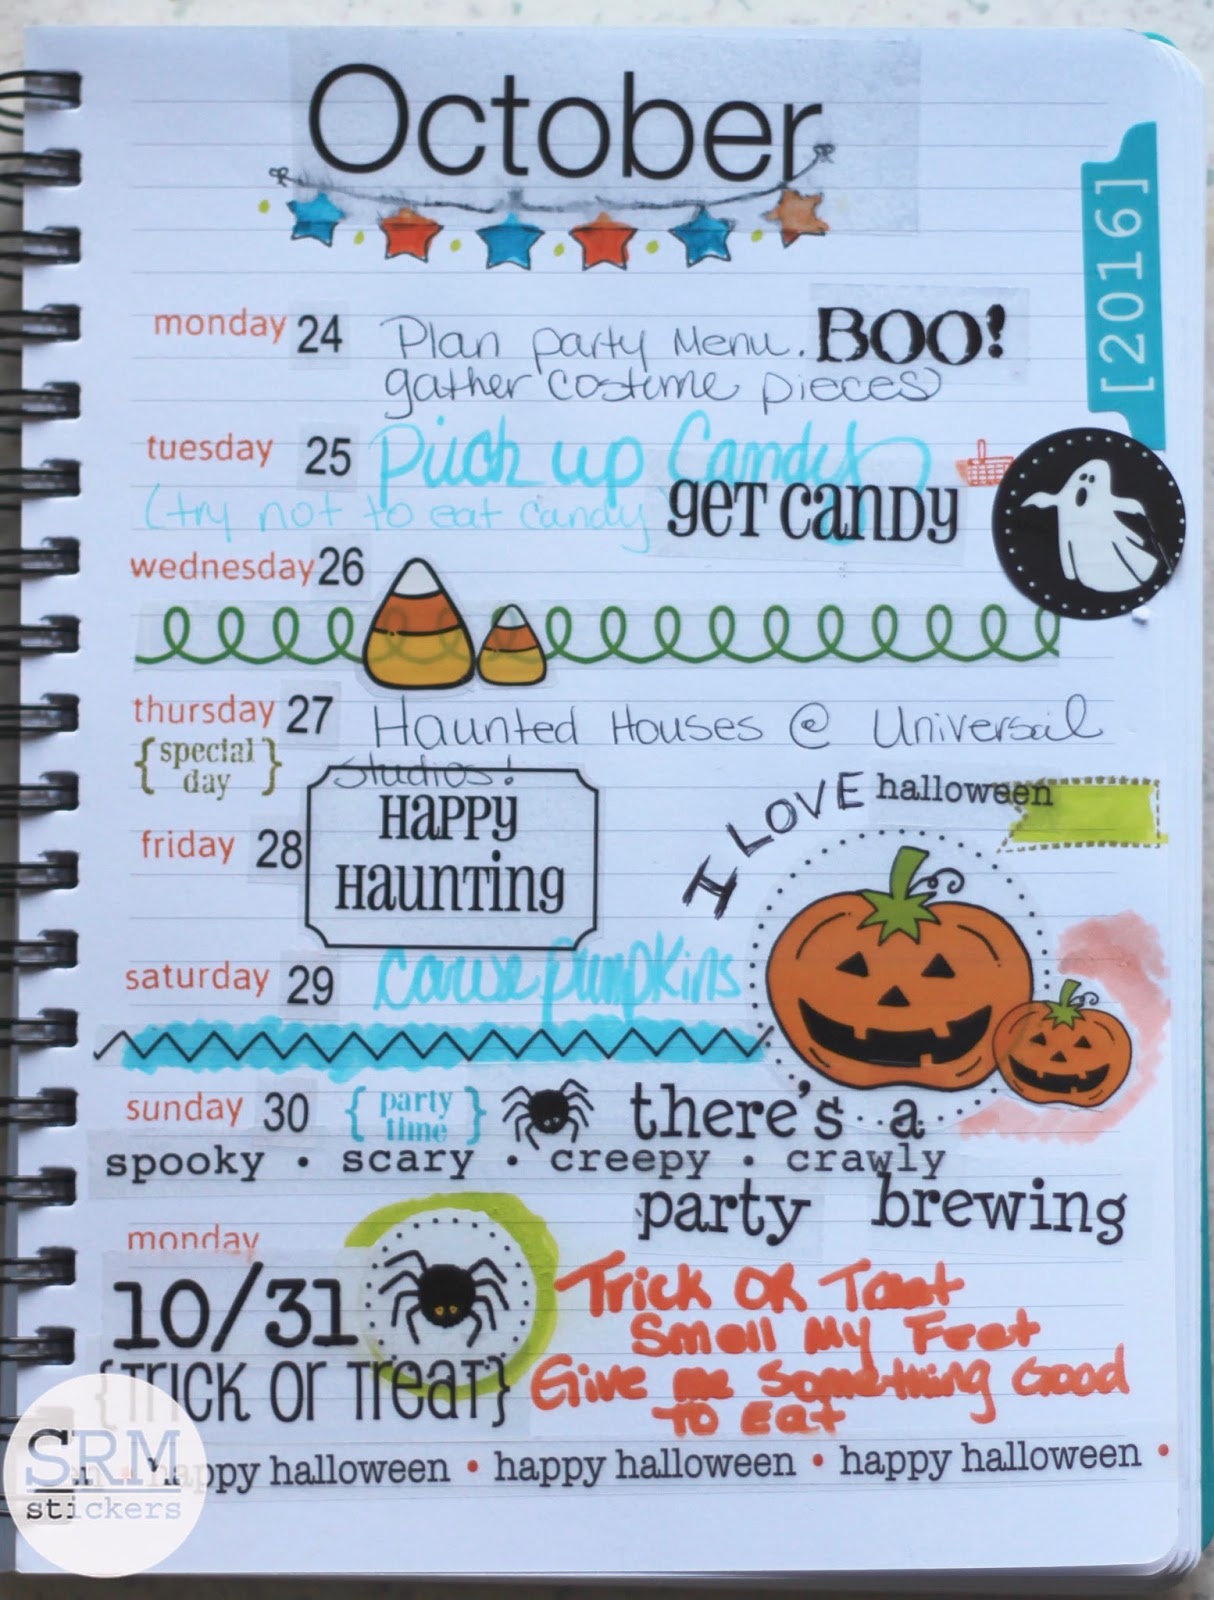 October
[2016]
monday 24 Plan party Menu. BOO!
gather costume pieces
tuesday 25 Pick up Candy
(try not to eat candy GET CANDY
wednesday 26
thursday 27 Haunted Houses @ Universal
{special day} Studios!
HAPPY
HAUNTING
I LOVE halloween
friday 28
saturday 29 Carve pumpkins
sunday 30 {party time} there's a
spooky • scary • creepy • crawly
party brewing
monday
10/31 Trick OR Treat
Smell My Feet
{TRICK OR TREAT} Give me Something Good
To Eat
happy halloween • happy halloween • happy halloween •
SRM
stickers